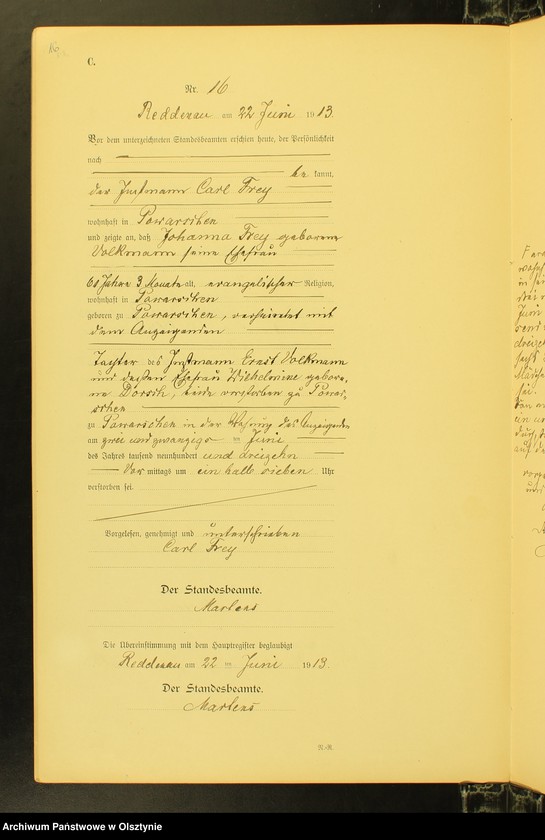 C.
Nr. 16
Reddenau am 22 Juni 1913.
Vor dem unterzeichneten Standesbeamten erschien heute, der Persönlichkeit
nach
be kannt,
der Instmann Carl Frey
wohnhaft in Powarschen
und zeigte an, daß Johanna Frey geborene
Volkmann seine Ehefrau
60 Jahre 3 Monate alt, evangelischer Religion,
wohnhaft in Powarschen
geboren zu Powarschen, verheiratet mit
dem Anzeigenden
Tochter des Instmann Ernst Volkmann
und dessen Ehefrau Wilhelmine gebore,
ne Dorsch, beide verstorben zu Powar,
schen
zu Powarschen in der Wohnung des Anzeigenden
am zwei und zwanzigs ten Juni
des Jahres tausend neunhundert und dreizehn
Vor mittags um ein halb sieben Uhr
verstorben sei.
Vorgelesen, genehmigt und unterschrieben
Carl Frey
Der Standesbeamte.
Martens
Die Übereinstimmung mit dem Hauptregister beglaubigt
Reddenau am 22 ten Juni 1913.
Der Standesbeamte.
Martens
Archiwum Państwowe w Olsztynie